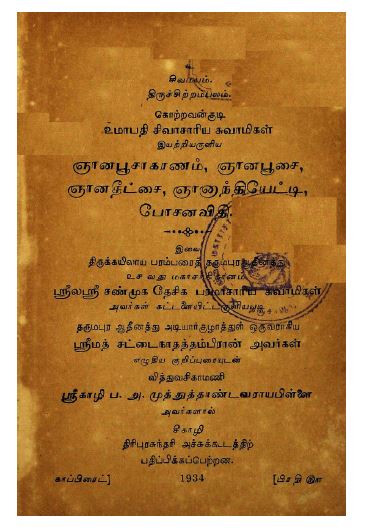 உ
சிவமயம்.
திருச்சிற்றம்பலம்.
கொற்றவன்குடி
உமாபதி சிவாசாரிய சுவாமிகள்
இயற்றியருளிய
ஞானபூசாகரணம், ஞானபூசை,
ஞானதீட்சை, ஞானாந்தியேட்டி,
போசனவிதி.
இவை
திருக்கயிலாய பரம்பரைத் தருமபுரவாதீனத்து
ஸ்ரீலஸ்ரீ சண்முக தேசிக பரமாசாரிய சுவாமிகள்
அவர்கள் கட்டளையிட்டருளியபடி
தருமபுர ஆதீனத்து அடியார்குழாத்துள் ஒருவராகிய
ஸ்ரீமத் சட்டைநாதத்தம்பிரான் அவர்கள்
எழுதிய குறிப்புரையுடன்
வித்துவசிகாமணி
ஸ்ரீகாழி ப. அ. முத்துத்தாண்டவராயபிள்ளை
அவர்களால்
சீகாழி
திரிபுரசுந்தரி அச்சுக்கூடத்திற்
பதிப்பிக்கப்பெற்றன.
காப்பிரைட்] 1934